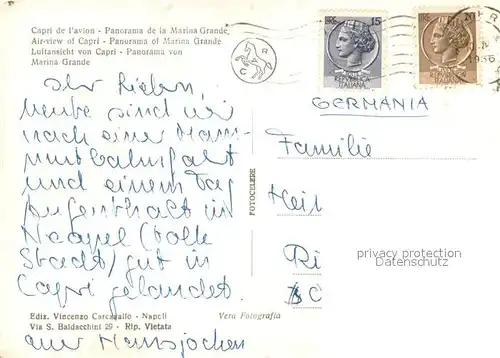 Capri de l'avion - Panorama de la Marina Grande
Air-view of Capri - Panorama of Marina Grande
Luftansicht von Capri - Panorama von
Marina Grande
Ihr Lieben,
heute sind wir
nach einer
und einem Tag
Aufenthalt in
Neapel (tolle
Stadt) gut in
Capri gelandet.
Ediz. Vincenzo Carcavallo - Napoli
Via S. Baldacchini 29 - Rip. Vietata
Vera Fotografia
euer Hansjochen
FOTOCELERE
15
20
REPUBBLICA
ITALIANA
C R
GERMANIA
Familie
Hei
Ri
C
privacy protection
Datenschutz